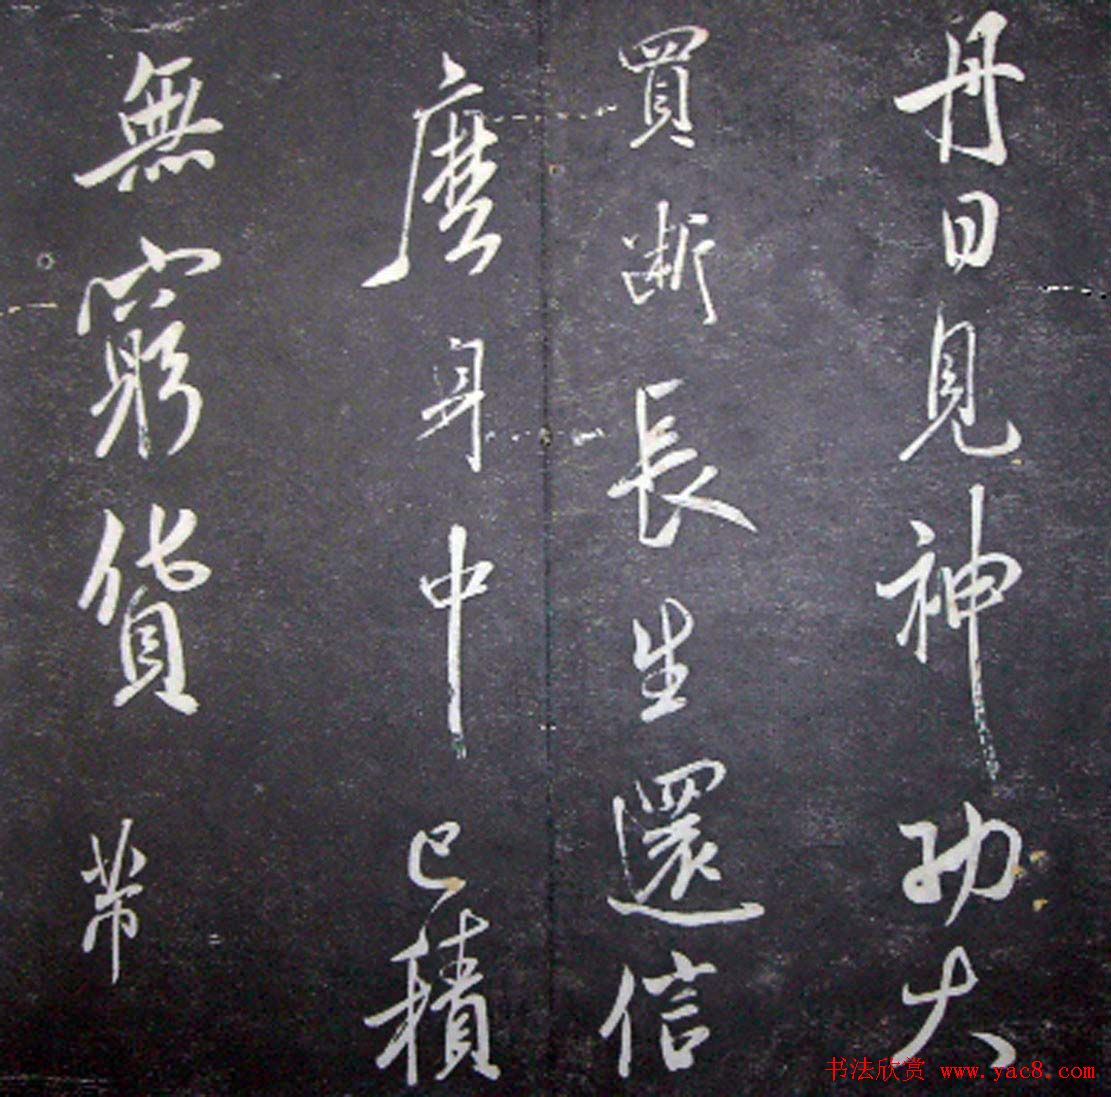 丹日見神功大
買斷長生還信
麼身中已積
無窮貨帶
书法欣赏 www.yac8.com